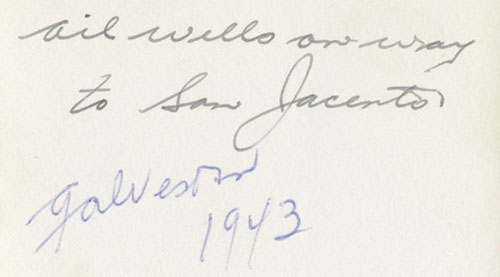 oil wells on way
to San Jacento
Galveston
1943